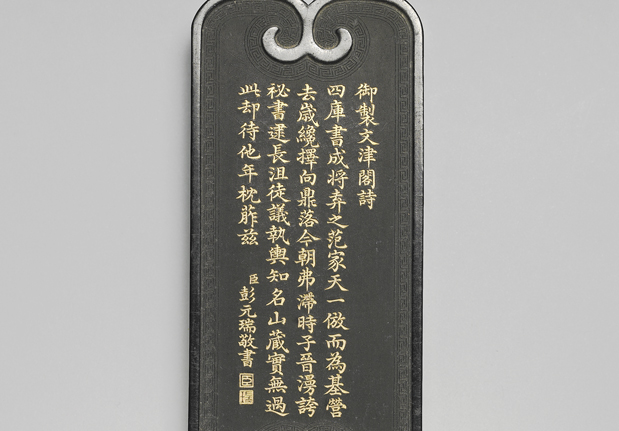 御製文津閣詩
四庫書成將弆之范家天一倣而為基營
去歲纔擇向鼎落今朝弗滯時子晉漫誇
祕書逮長沮徒議執輿知名山藏實無過
此却待他年枕葄茲
臣彭元瑞敬書
臣